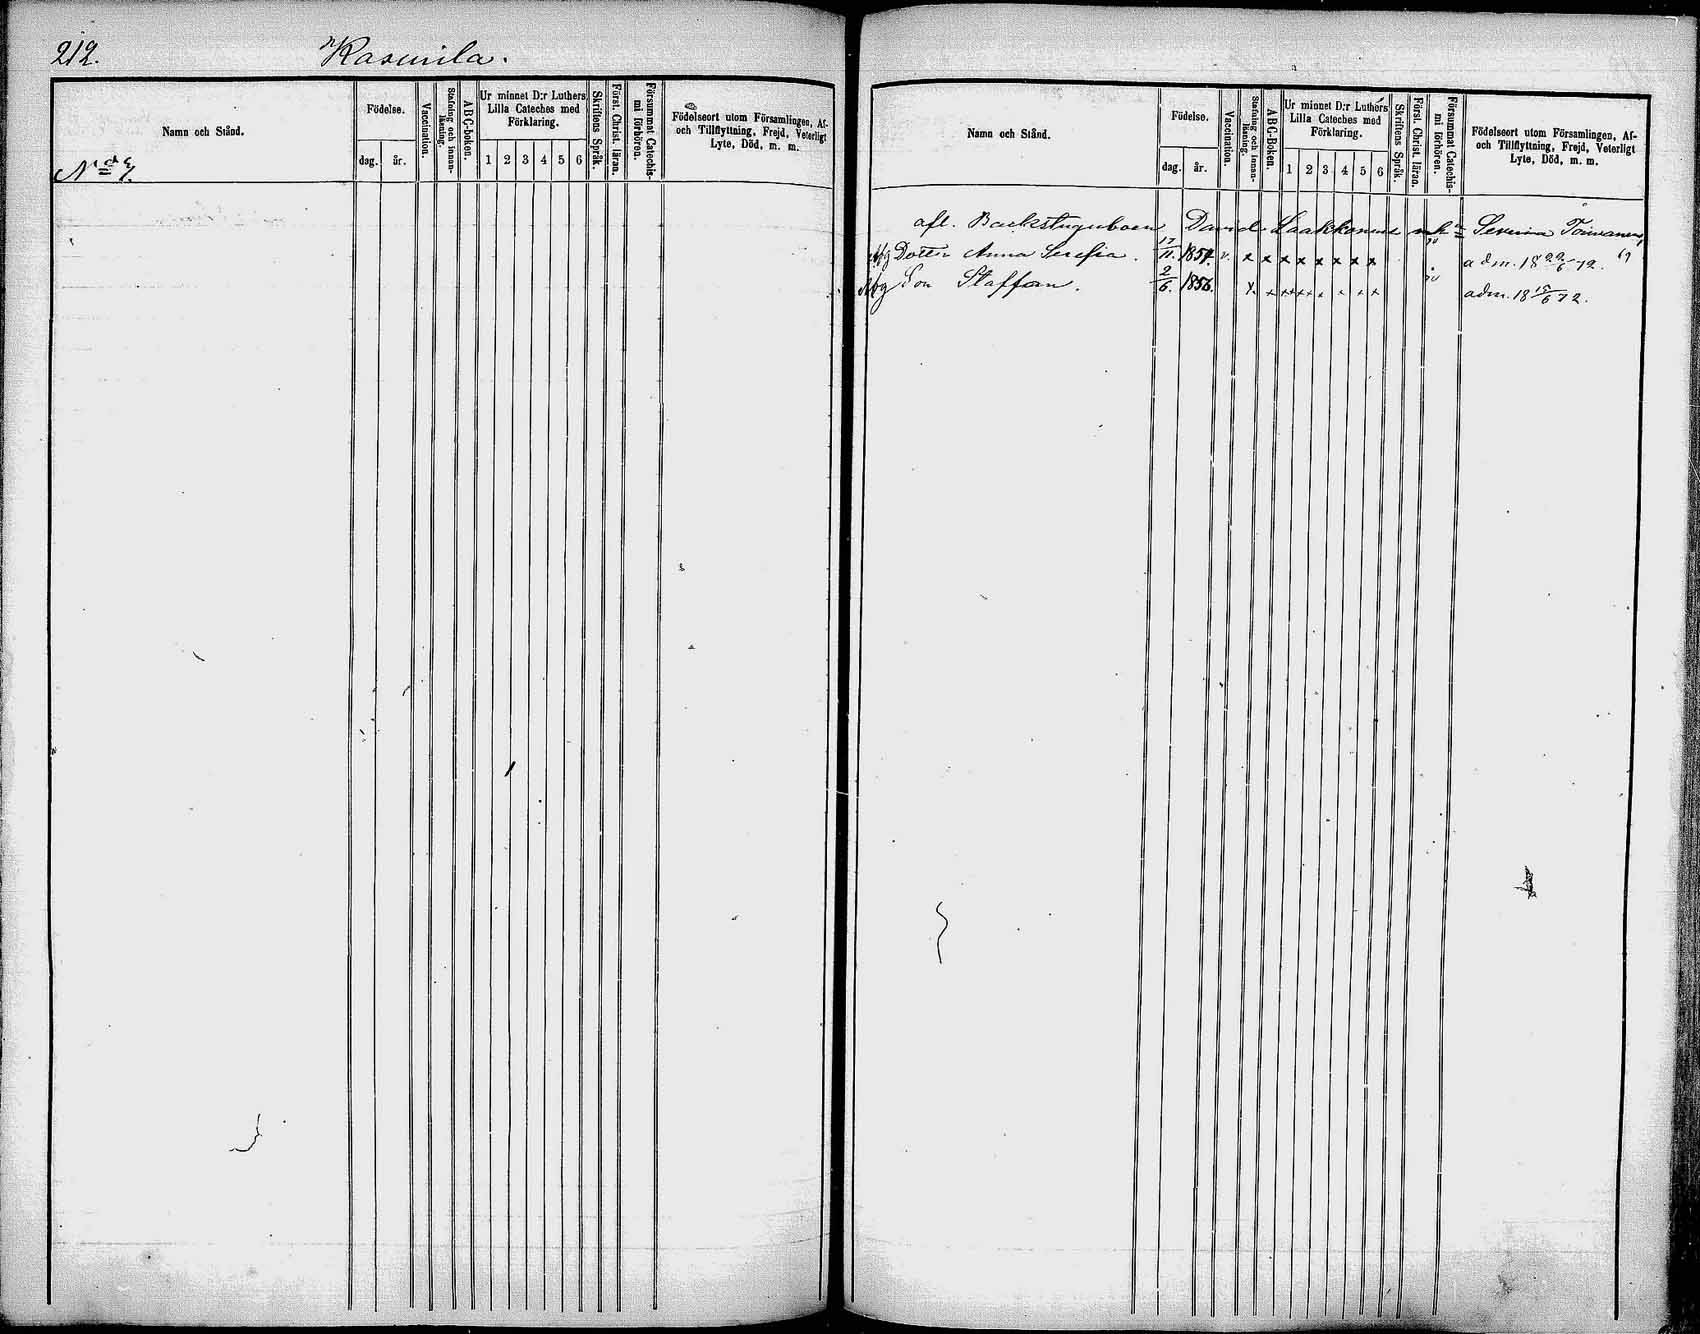 212. Rasinila.
Namn och Stånd.
Födelse.
dag. år.
Vaccination.
Stafning och innan-läsning.
ABC-boken.
Ur minnet D:r Luthers
Lilla Cateches med
Förklaring.
1 2 3 4 5 6
Skriftens Språk.
Först. Christ. läran.
Försummat Catechis-
mi förhören.
Födelseort utom Församlingen, Af-
och Tillflyttning, Frejd, Veterligt
Lyte, Död, m. m.
Namn och Stånd.
Födelse.
dag. år.
Vaccination.
Stafning och innan-läsning.
ABC-Boken.
Ur minnet D:r Luthers
Lilla Cateches med
Förklaring.
1 2 3 4 5 6
Skriftens Språk.
Först. Christ. läran.
Försummat Catechis-
mi förhören.
Födelseort utom Församlingen, Af-
och Tillflyttning, Frejd, Veterligt
Lyte, Död, m. m.
afl. Backstuguboen David Laakkonens Severina
Dotter Anna Serefia. 17/11. 1854. v. x x x x x x x x adm. 18 22/6 72.
Son Staffan. 2/6. 1856. x x x x x x x x adm. 18 15/6 72.